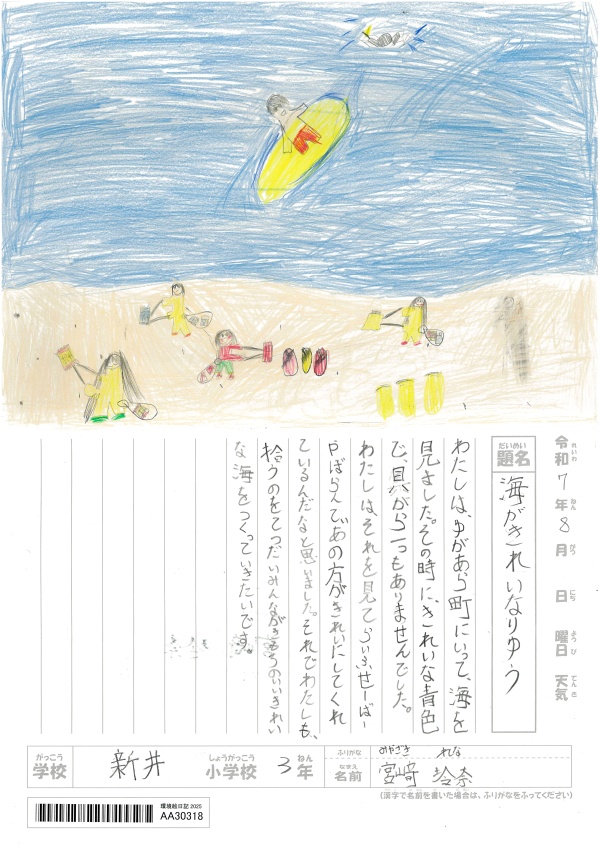 令和7年8月 日 曜日 天気
れいわ ねん がつ にち ようび てんき
だいめい
題名
海がきれいなりゆう
わたしは、ゆがあら町にいって、海を
見ました。その時に、きれいな青色
で、貝がら一つもありませんでした。
わたしは、それを見てらいふせーばー
やぼらんてあの方がきれいにしてくれ
ているんだなと思いました。それでわたしも、
拾うのをてつだいみんながきもちのいいきれい
な海をつくっていきたいです。
がっこう
学校
新井
しょうがっこう
小学校
3年
ねん
ふりがな
みやざき れな
なまえ
名前
宮崎 玲奈
(漢字で名前を書いた場合は、ふりがなをふってください)
環境絵日記 2025
AA30318